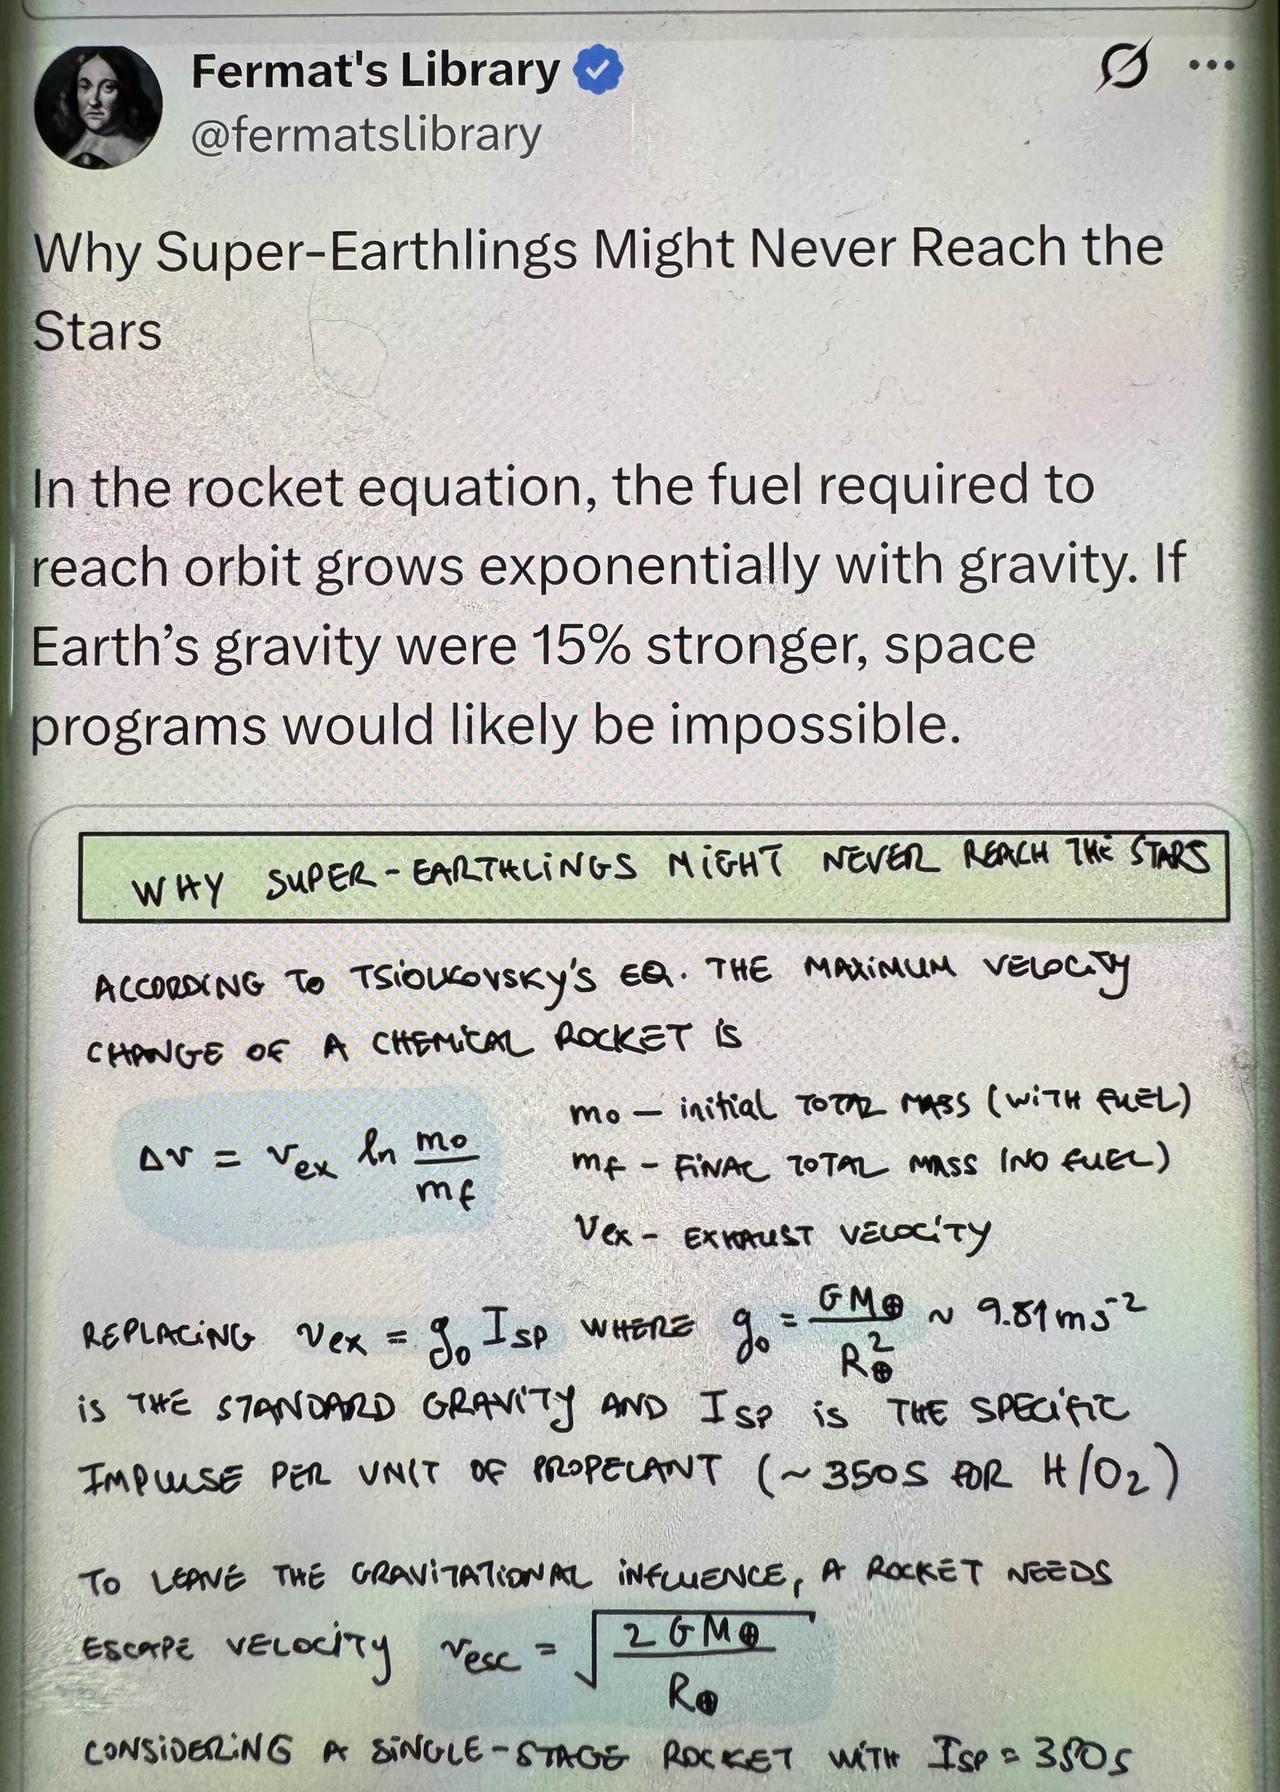 Fermat's Library
@fermatslibrary
Why Super-Earthlings Might Never Reach the
Stars
In the rocket equation, the fuel required to
reach orbit grows exponentially with gravity. If
Earth's gravity were 15% stronger, space
programs would likely be impossible.
WHY SUPER-EARTHLINGS MIGHT NEVER REACH THE STARS
ACCORDING TO TSIOLKOVSKY'S EQ. THE MAXIMUM VELOCITY
CHANGE OF A CHEMICAL ROCKET IS
Δv = v_ex ln m₀/m_f
m₀ — initial TOTAL MASS (WITH FUEL)
m_f – FINAL TOTAL MASS (NO FUEL)
V_ex – EXHAUST VELOCITY
REPLACING v_ex = g₀ I_SP WHERE g₀ = GM⊕/R⊕² ~ 9.81ms⁻²
is THE STANDARD GRAVITY AND I_SP is THE SPECIFIC
IMPULSE PER UNIT OF PROPELANT (~350S FOR H/O₂)
TO LEAVE THE GRAVITATIONAL INFLUENCE, A ROCKET NEEDS
ESCAPE VELOCITY v_esc = √(2GM⊕/R⊕)
CONSIDERING A SINGLE-STAGE ROCKET WITH I_SP = 350s